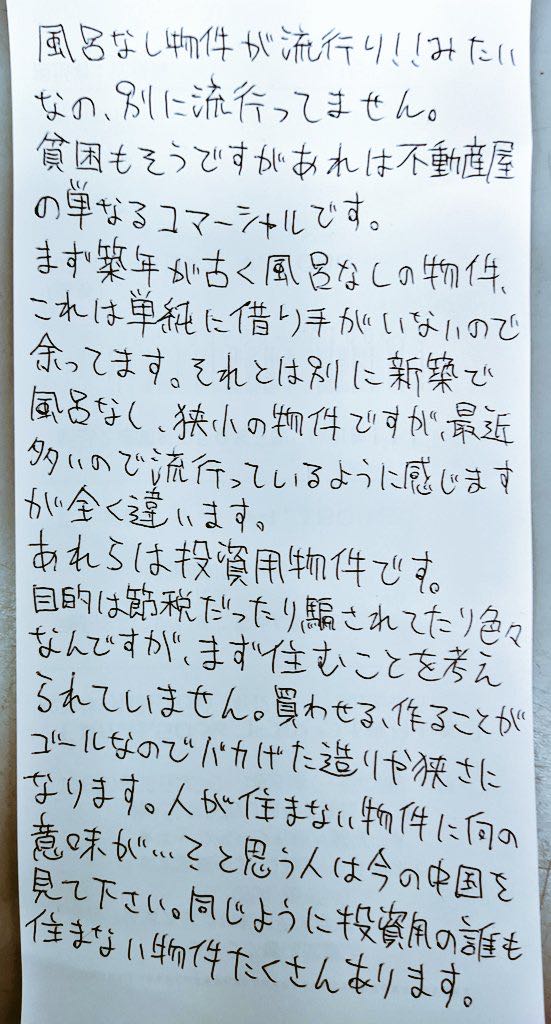 風呂なし物件が流行り!!みたい
なの、別に流行ってません。
貧困もそうですがあれは不動産屋
の単なるコマーシャルです。
まず築年が古く風呂なしの物件、
これは単純に借り手がいないので
余ってます。それとは別に新築で
風呂なし、狭小の物件ですが、最近
多いので流行っているように感じます
が全く違います。
あれらは投資用物件です。
目的は節税だったり騙されてたり色々
なんですが、まず住むことを考え
られていません。買わせる、作ることが
ゴールなのでバカげた造りや狭さに
なります。人が住まない物件に何の
意味が…?と思う人は今の中国を
見て下さい。同じように投資用の誰も
住まない物件たくさんあります。